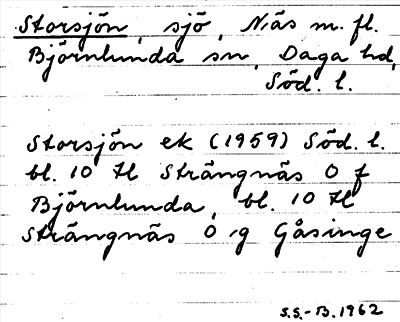 Storsjön, sjö, Näs m. fl.
Björnlunda sn, Daga hd,
Söd. l.
Storsjön ek (1959) Söd. l.
bl. 10 H Strängnäs O f
Björnlunda, bl. 10 H
Strängnäs O g Gåsinge
S.S.-B. 1962